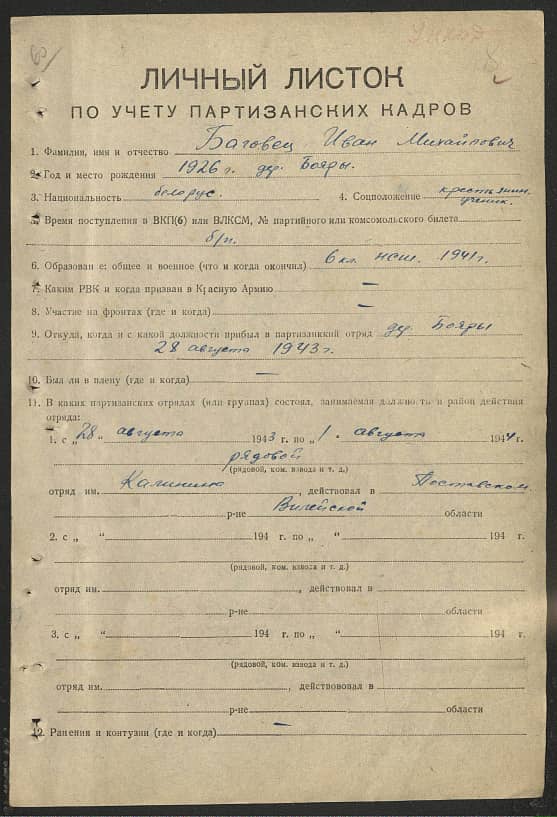 ЛИЧНЫЙ ЛИСТОК
ПО УЧЕТУ ПАРТИЗАНСКИХ КАДРОВ
1. Фамилия, имя и отчество Баговец Иван Михайлович
2. Год и место рождения 1926 г. дер. Бояры.
3. Национальность белорус. 4. Соцположение крестьянин. ученик.
5. Время поступления в ВКП(б) или ВЛКСМ, № партийного или комсомольского билета
б/п.
6. Образование: общее и военное (что и когда окончил) 6 кл. НСШ. 1941 г.
7. Каким РВК и когда призван в Красную Армию —
8. Участие на фронтах (где и когда) —
9. Откуда, когда и с какой должности прибыл в партизанский отряд дер. Бояры
28 августа 1943 г.
10. Был ли в плену (где и когда) —
11. В каких партизанских отрядах (или группах) состоял, занимаемая должность и район действия
отряда:
1. с „28" августа 1943 г. по „1" августа 1944 г.
рядовой
(рядовой, ком. взвода и т. д.)
отряд им. Калинина, действовал в Поставском
р-не Вилейской области
2. с „ " 194 г. по „ " 194 г.
(рядовой, ком. взвода и т. д.)
отряд им. , действовал в
р-не области
3. с „ " 194 г. по „ " 194 г.
(рядовой, ком. взвода и т. д.)
отряд им. , действововал в
р-не области
12. Ранения и контузии (где и когда) —